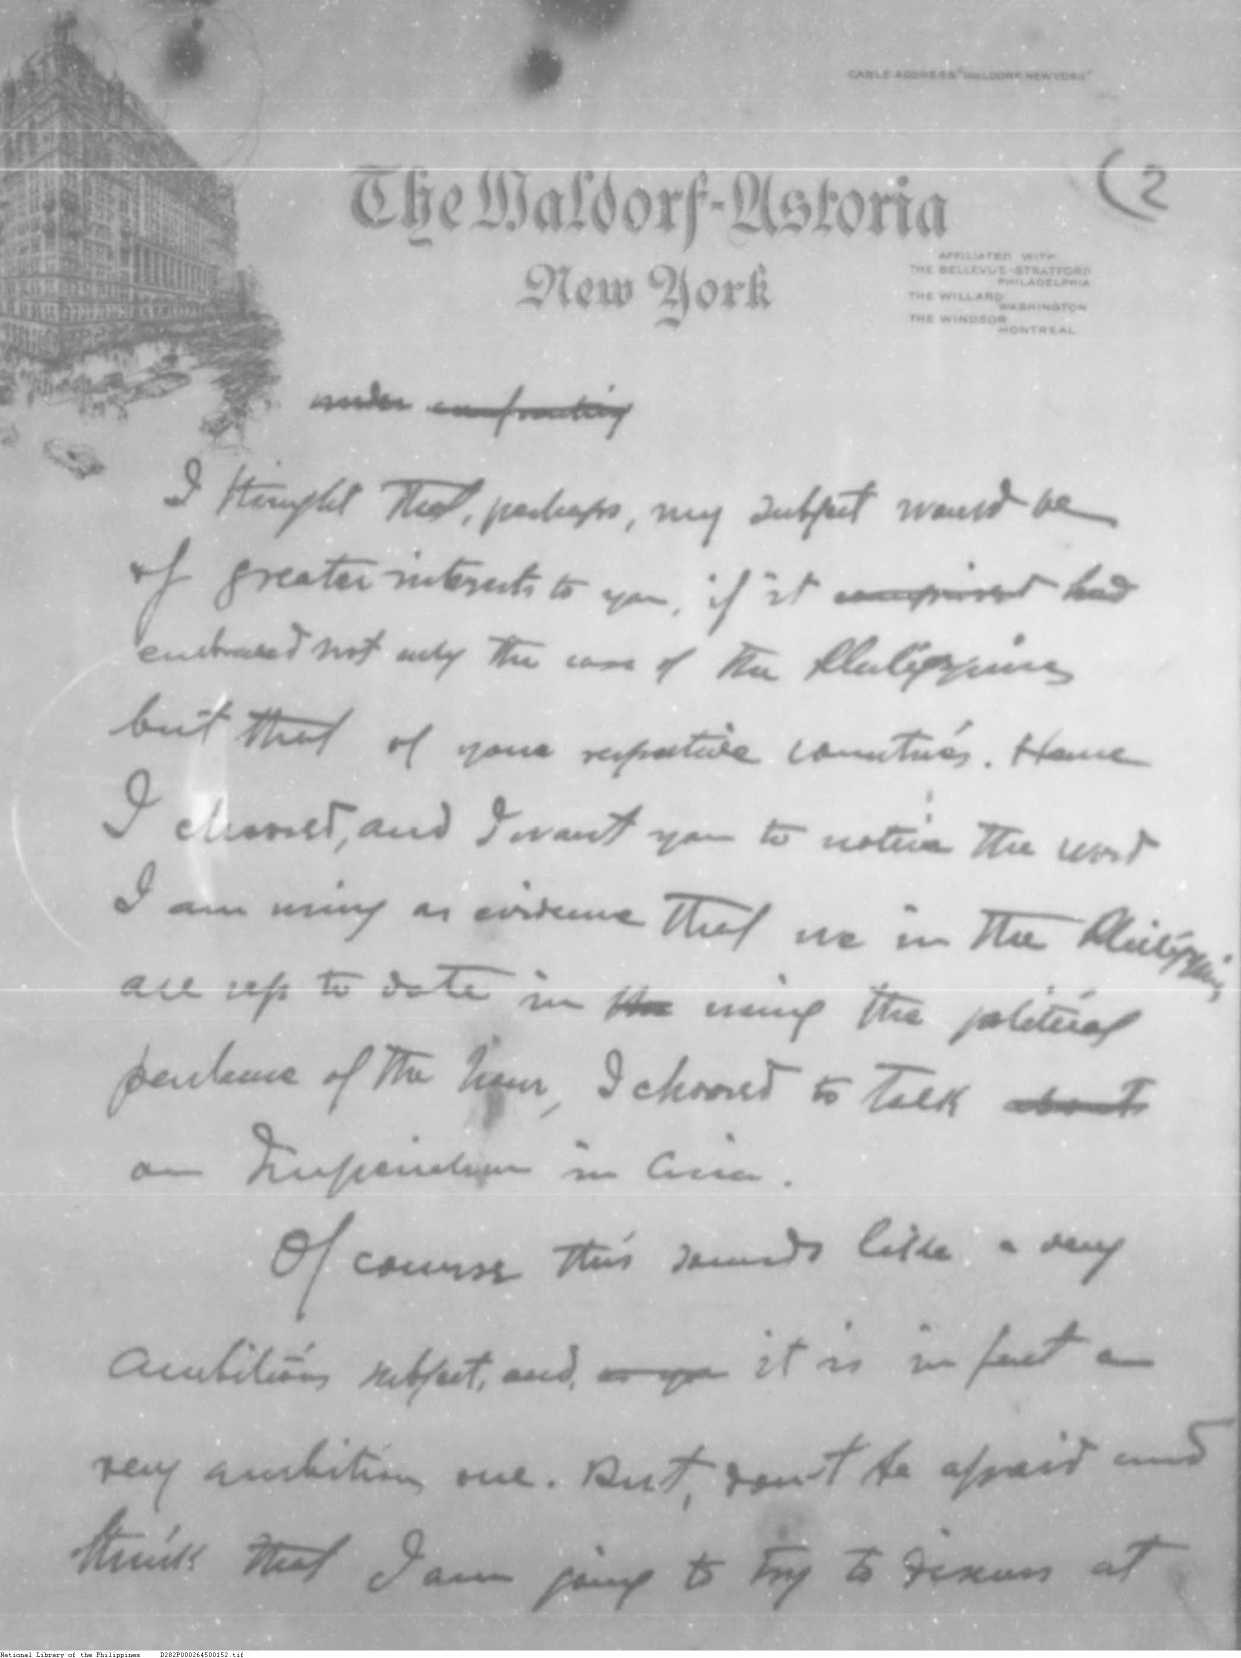 CABLE ADDRESS "WALDORF, NEW YORK"
(2
The Waldorf-Astoria
New York
AFFILIATED WITH
THE BELLEVUE-STRATFORD
PHILADELPHIA
THE WILLARD
WASHINGTON
THE WINDSOR
MONTREAL
under confronting
I thought that, perhaps, my subject would be
of greater interests to you, if it comprised had
embraced not only the case of the Philippines
but that of your respective countries. Hence
I choosed, and I want you to notice the word
I am using as evidence that we in the Philippines
are up to date in the using the political
parlance of the hour, I choosed to talk about
on Imperialism in Asia.
Of course this sounds like a very
ambitious subject, and, it is in fact a
very ambitious one. But, don't be afraid and
think that I am going to try to discuss at
National Library of the Philippines D282P000264500152.tif